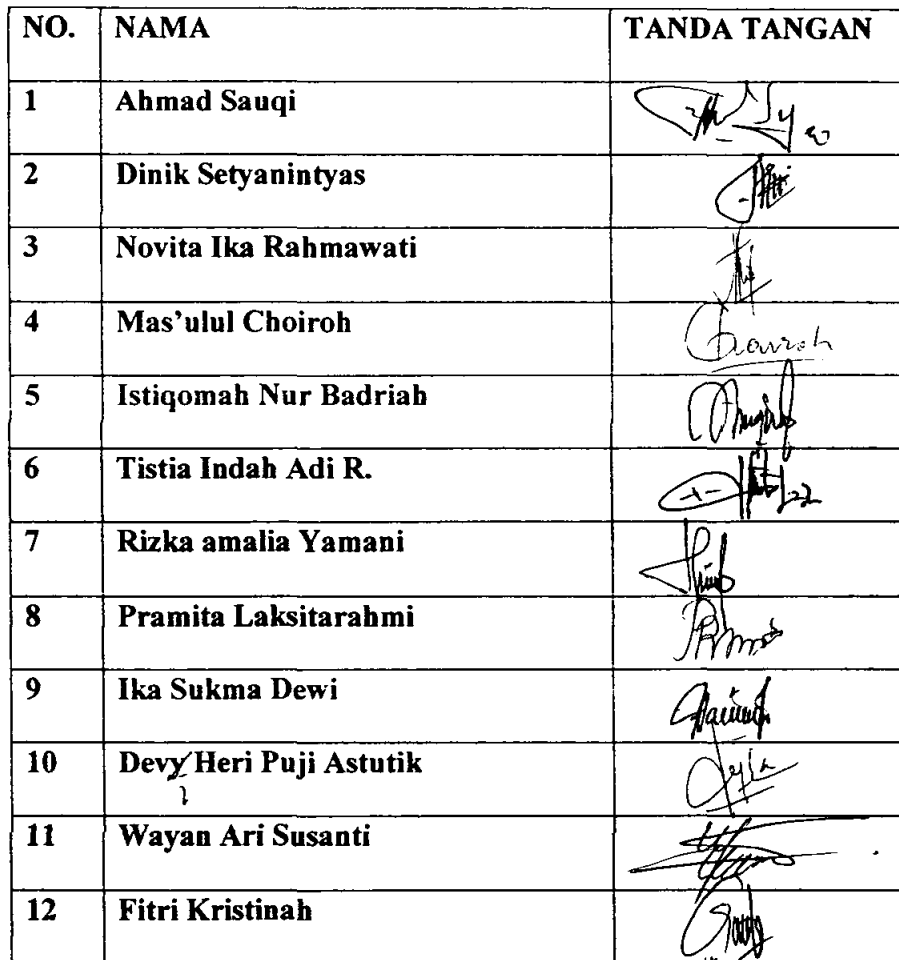 NO. NAMA TANDA TANGAN
1 Ahmad Sauqi
2 Dinik Setyanintyas
3 Novita Ika Rahmawati
4 Mas'ulul Choiroh
5 Istiqomah Nur Badriah
6 Tistia Indah Adi R.
7 Rizka amalia Yamani
8 Pramita Laksitarahmi
9 Ika Sukma Dewi
10 Devy Heri Puji Astutik
11 Wayan Ari Susanti
12 Fitri Kristinah